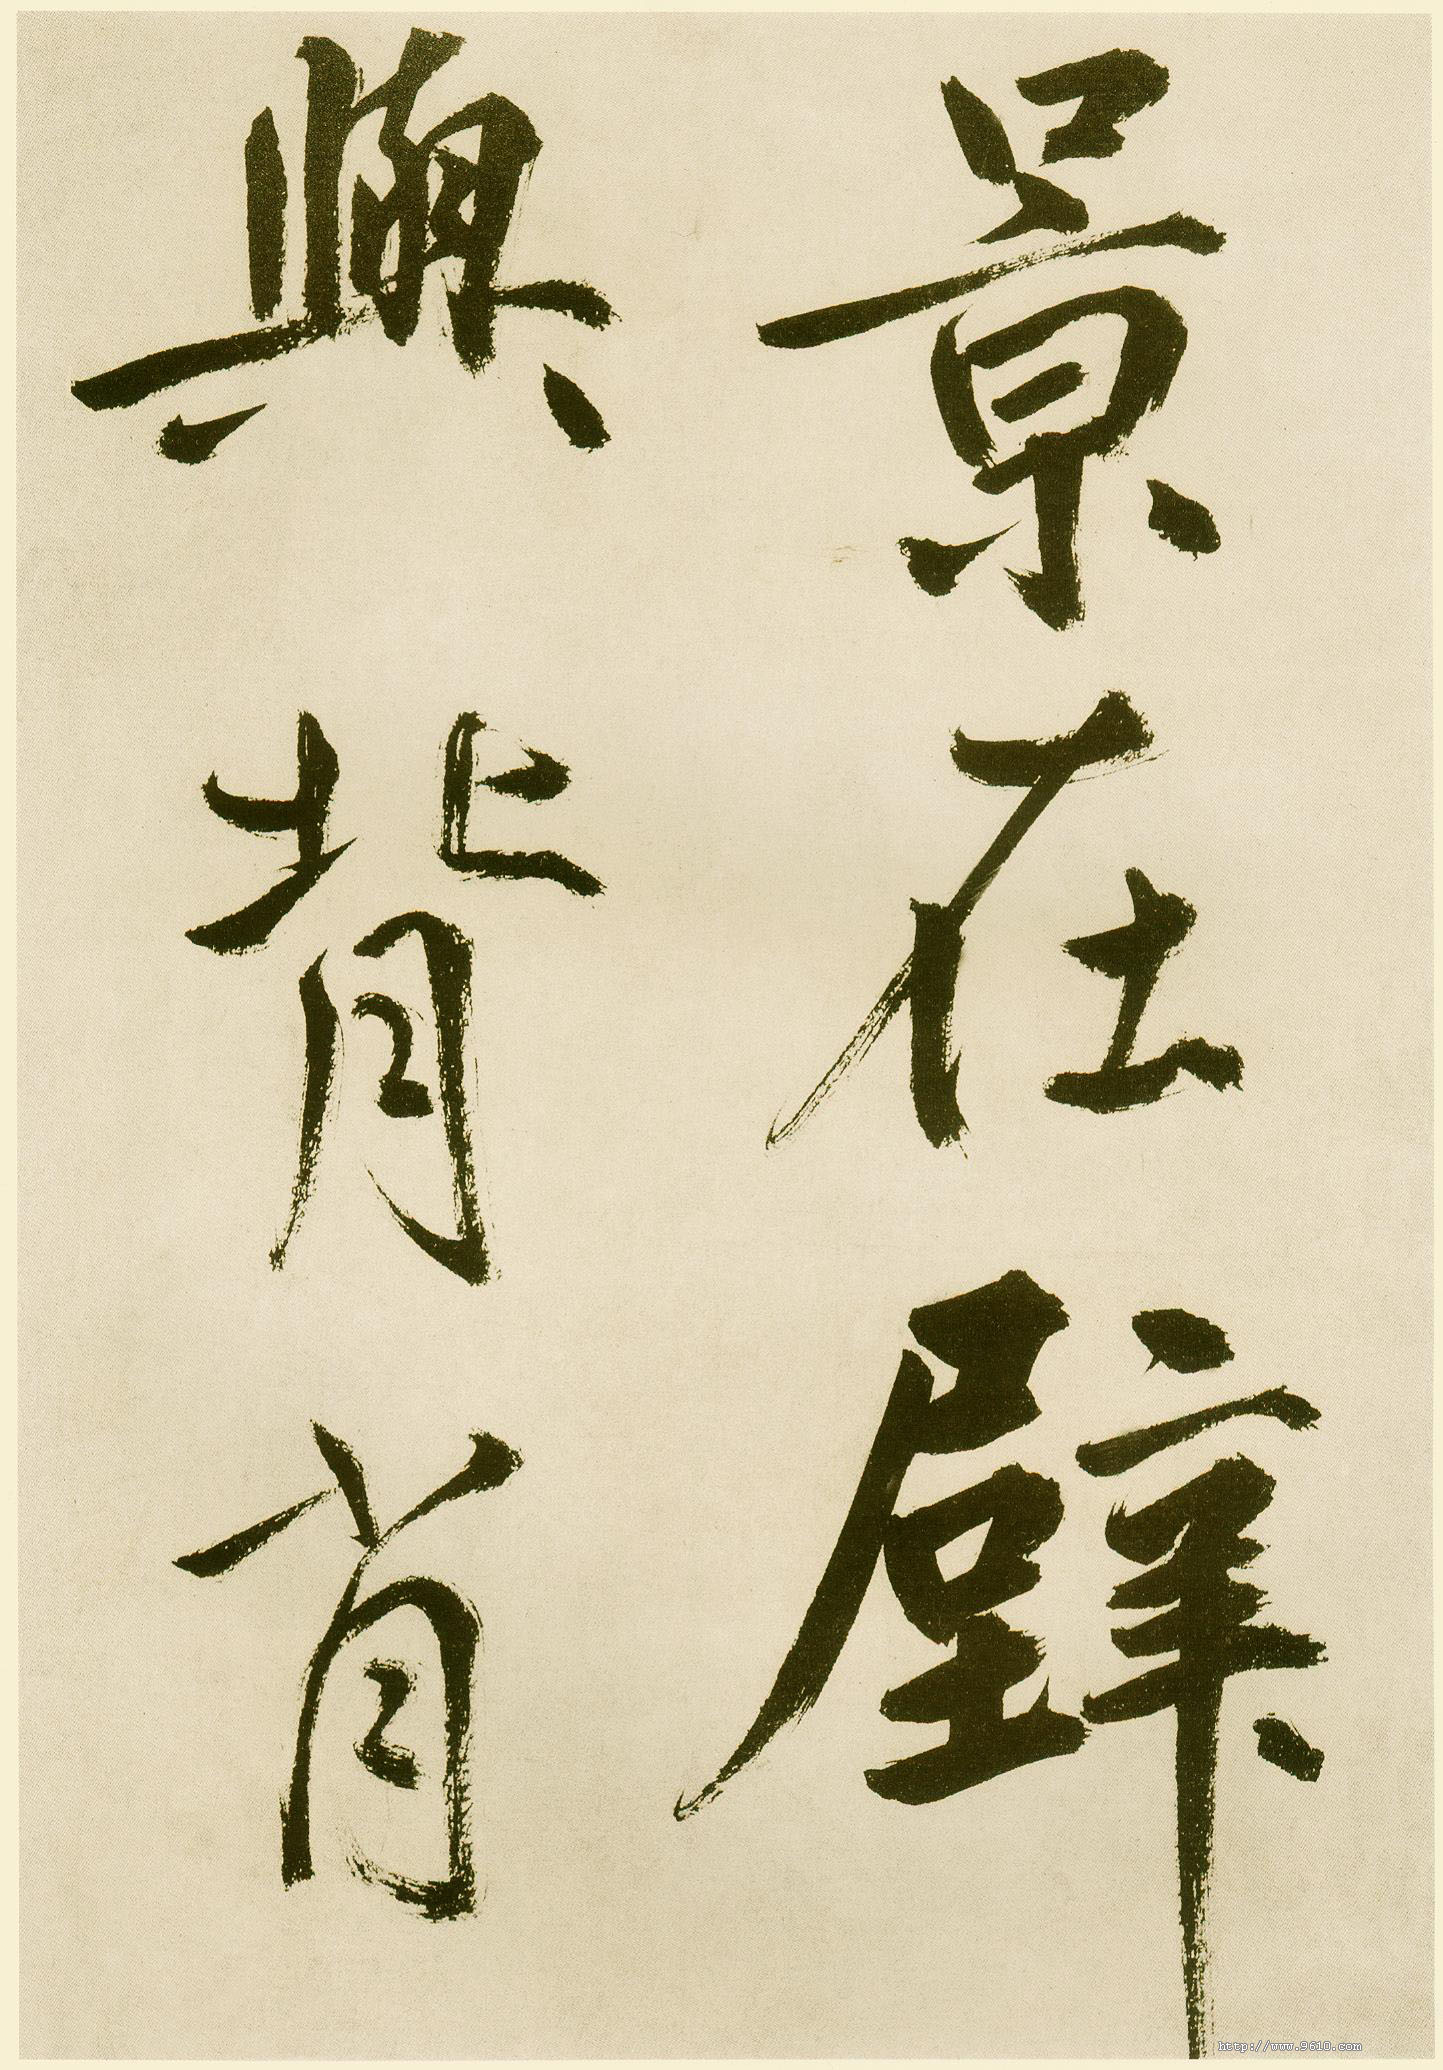 景在壁
與背肖
http://www.9610.com